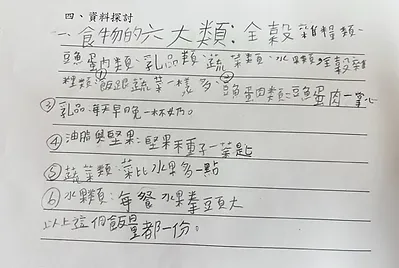 四、資料探討
一、食物的六大類:全穀雜糧類
豆魚蛋肉類、乳品類、蔬菜類、水果類 全穀雜
糧類:①飯跟蔬菜一樣多 ②豆魚蛋肉類:豆魚蛋肉一掌心
③乳品:每天早晚一杯奶。
④油脂與堅果:堅果種子一茶匙
⑤蔬菜類:菜比水果多一點
⑥水果類:每餐水果拳頭大
以上這個飯量都一份。